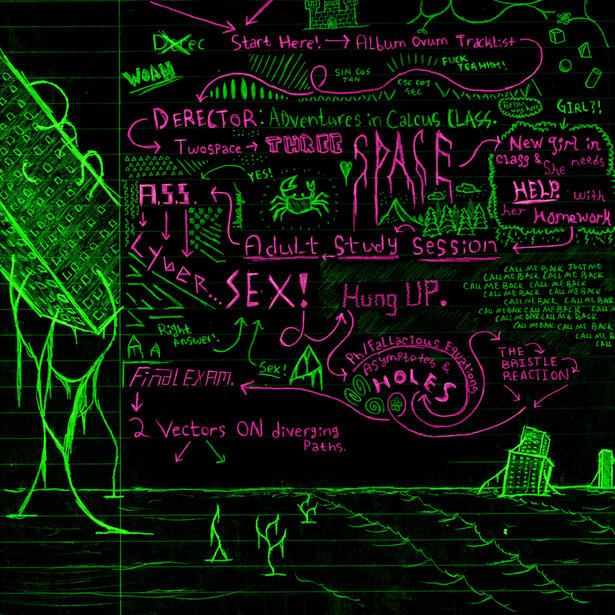 Derec
Start Here! → Album Ovum Tracklist
WOAH
SIN COS
TAN
FUCK
YEAHHH!
CSC COT
SEC
GIRL?!
DERECTOR: ADventures in Calcus CLASS.
Twospace → THREE
SPACE
New girl in
class & She needs
HELP with
her Homework
YES!
A.S.S.
Adult Study Session
Cyber... SEX!
Hung UP.
CALL ME BACK JUST ME
CALL ME BACK CALL ME BACK
CALL ME BACK CALL ME BACK
CALL ME BACK CALL ME BACK
CALL ME BACK CALL ME BACK
CALL ME BACK CALL ME BACK
CALL ME BACK CALL ME BACK
CALL ME BACK CALL ME B
CALL ME B
CALL
Right
Answer!
Sex!
Phifallacious Equations
Asymptotes &
HOLES
THE
BRISTLE
REACTION
Final EXAM.
2 Vectors ON diverging
Paths.